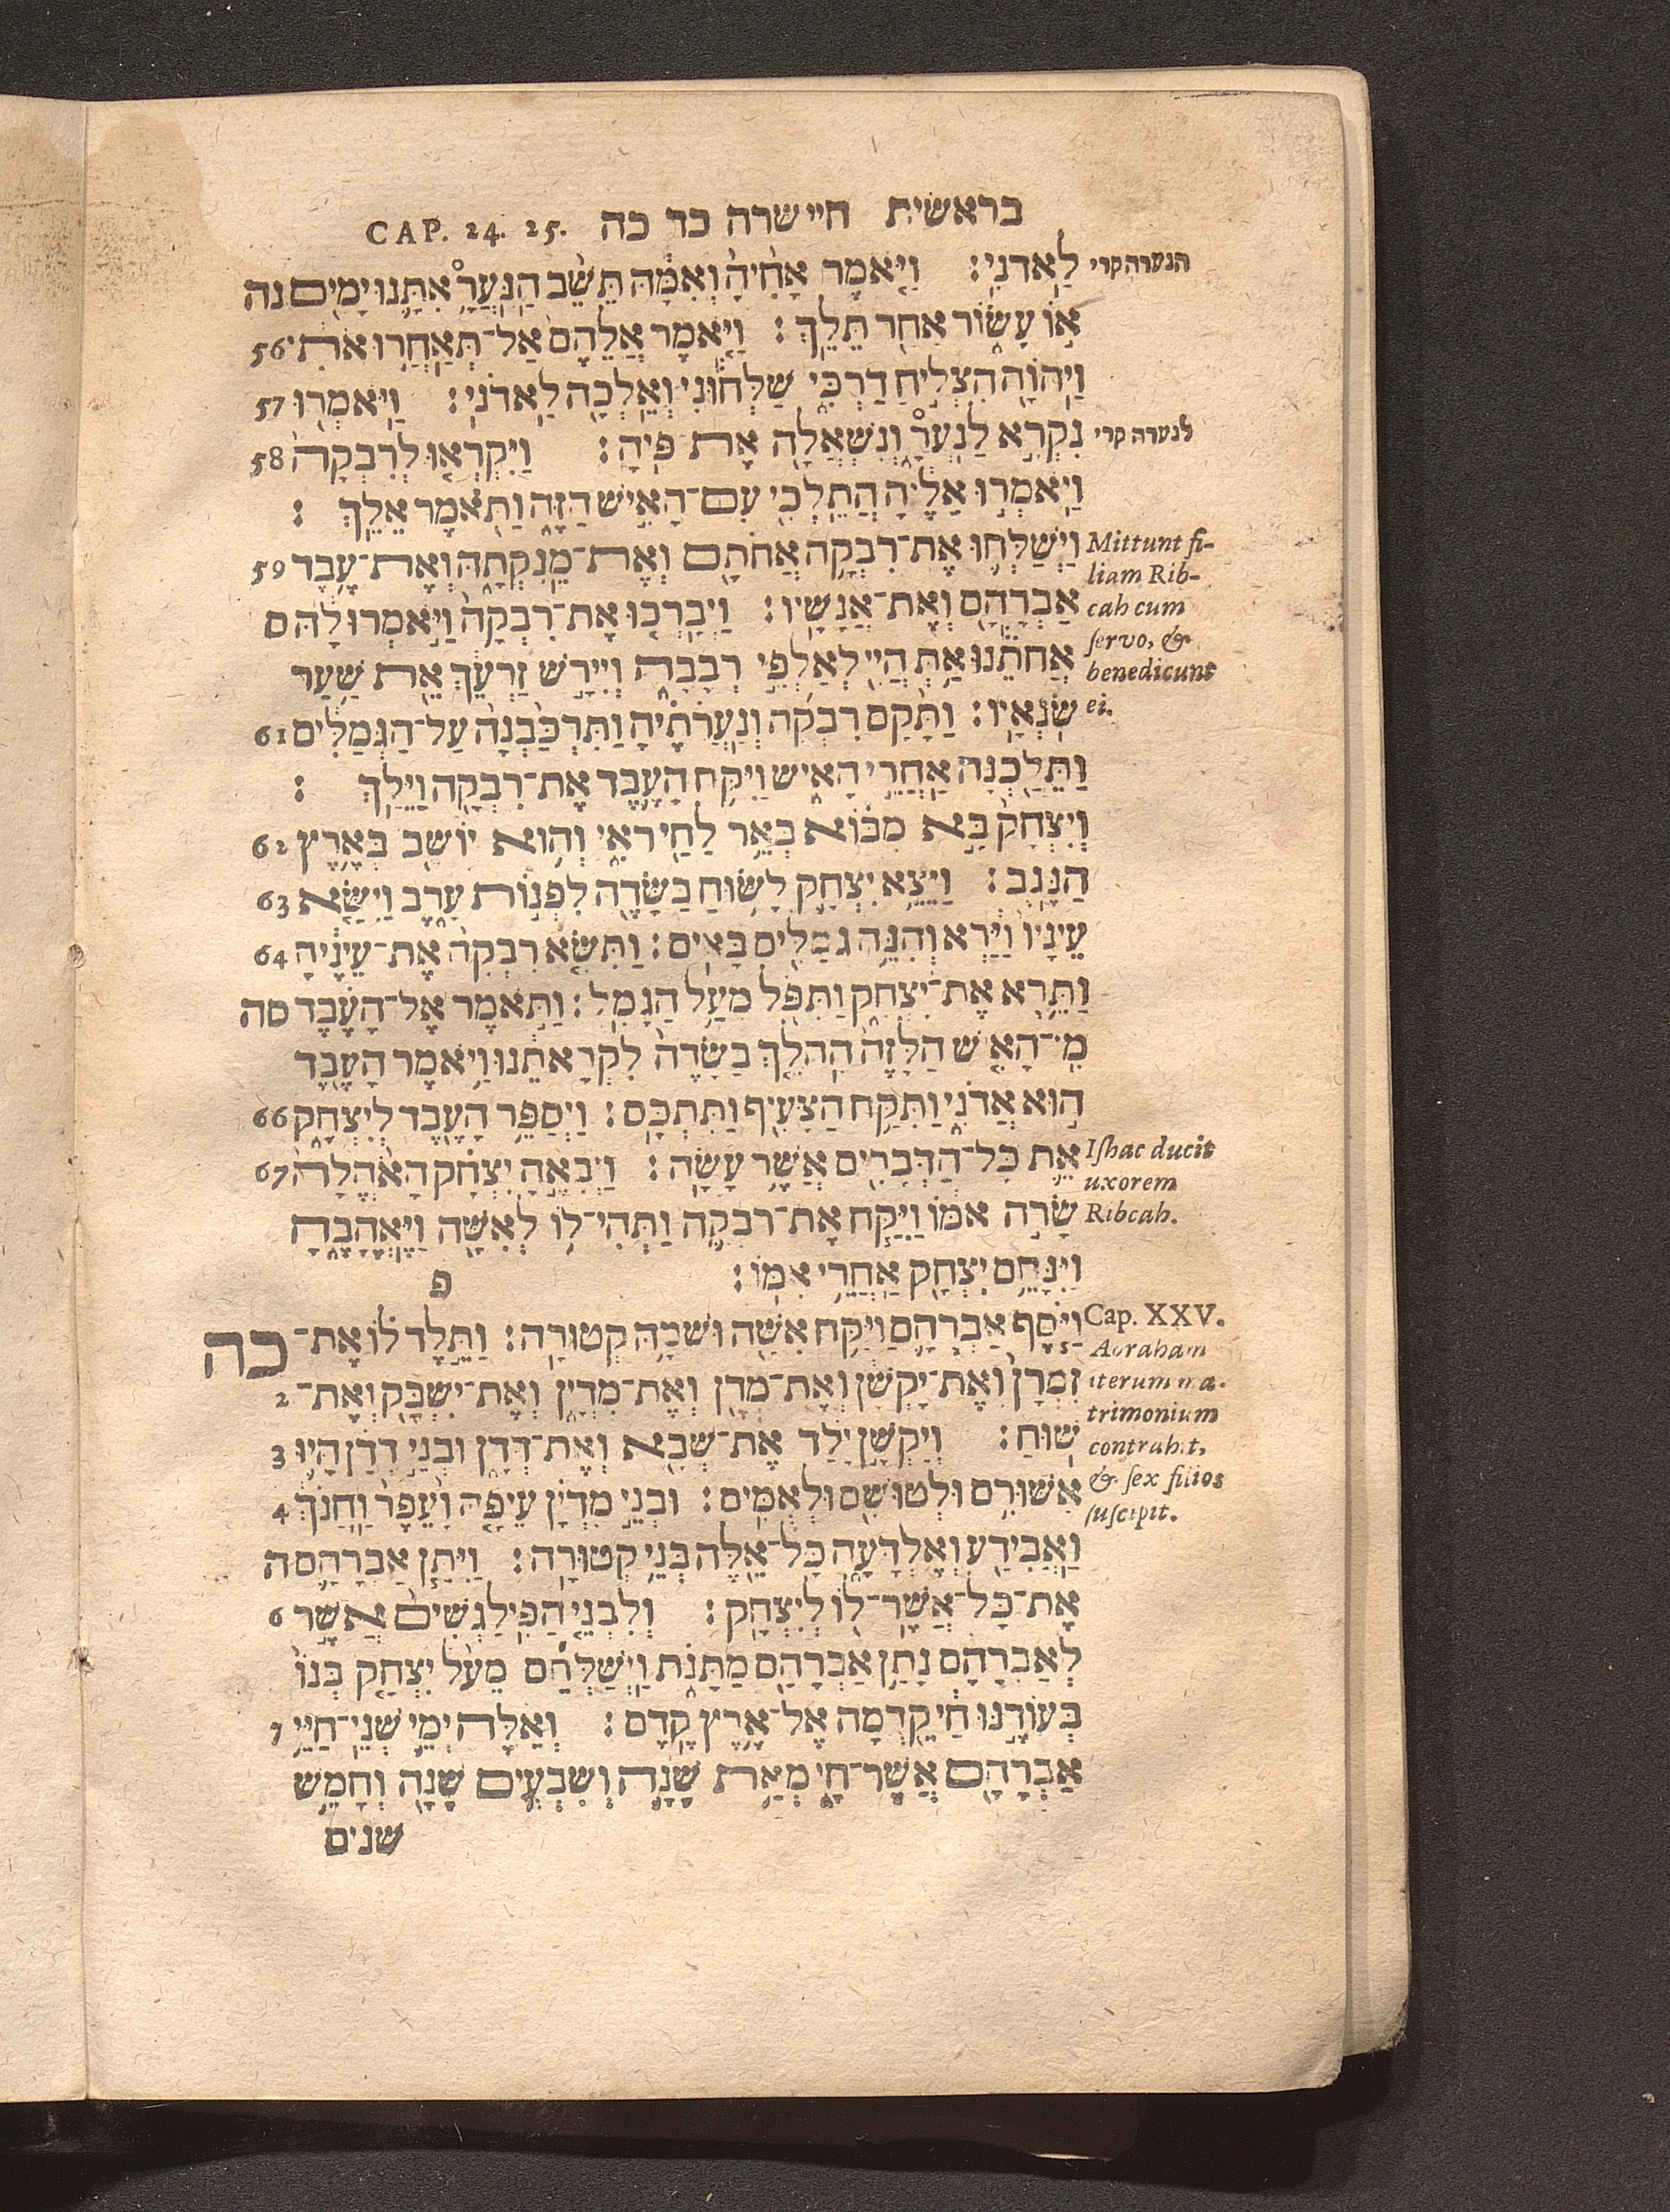 בראשית חיי שרה כד כה CAP. 24. 25.
הנערה קרי
לַֽאדֹנִֽי׃ וַיֹּ֤אמֶר אָחִ֙יהָ֙ וְאִמָּ֔הּ תֵּשֵׁ֨ב הַנַּעֲרָ֥ אִתָּ֛נוּ יָמִ֖ים נה
א֣וֹ עָשׂ֑וֹר אַחַ֖ר תֵּלֵֽךְ׃ וַיֹּ֤אמֶר אֲלֵהֶם֙ אַל־תְּאַחֲר֣וּ אֹתִ֔י 56
וַֽיהוָ֖ה הִצְלִ֣יחַ דַּרְכִּ֑י שַׁלְּח֕וּנִי וְאֵלְכָ֖ה לַֽאדֹנִֽי׃ וַיֹּאמְר֖וּ 57
לנערה קרי
נִקְרָ֣א לַֽנַּעֲרָ֑ וְנִשְׁאֲלָ֖ה אֶת־פִּֽיהָ׃ וַיִּקְרְא֤וּ לְרִבְקָה֙ 58
וַיֹּאמְר֣וּ אֵלֶ֔יהָ הֲתֵלְכִ֖י עִם־הָאִ֣ישׁ הַזֶּ֑ה וַתֹּ֖אמֶר אֵלֵֽךְ׃
וַֽיְשַׁלְּח֛וּ אֶת־רִבְקָ֥ה אֲחֹתָ֖ם וְאֶת־מֵנִקְתָּ֑הּ וְאֶת־עֶ֥בֶד 59
אַבְרָהָ֖ם וְאֶת־אֲנָשָֽׁיו׃ וַיְבָרְכ֤וּ אֶת־רִבְקָה֙ וַיֹּ֣אמְרוּ לָ֔הּ ס
אֲחֹתֵ֕נוּ אַ֥תְּ הֲיִ֖י לְאַלְפֵ֣י רְבָבָ֑ה וְיִירַ֣שׁ זַרְעֵ֔ךְ אֵ֖ת שַׁ֥עַר
שֹׂנְאָֽיו׃ וַתָּ֨קָם רִבְקָ֜ה וְנַעֲרֹתֶ֗יהָ וַתִּרְכַּ֙בְנָה֙ עַל־הַגְּמַלִּ֔ים 61
וַתֵּלַ֖כְנָה אַחֲרֵ֣י הָאִ֑ישׁ וַיִּקַּ֥ח הָעֶ֛בֶד אֶת־רִבְקָ֖ה וַיֵּלַֽךְ׃
וְיִצְחָק֙ בָּ֣א מִבּ֔וֹא בְּאֵ֥ר לַחַ֖י רֹאִ֑י וְה֥וּא יוֹשֵׁ֖ב בְּאֶ֥רֶץ 62
הַנֶּֽגֶב׃ וַיֵּצֵ֥א יִצְחָ֛ק לָשׂ֥וּחַ בַּשָּׂדֶ֖ה לִפְנ֣וֹת עָ֑רֶב וַיִּשָּׂ֤א 63
עֵינָיו֙ וַיַּ֔רְא וְהִנֵּ֥ה גְמַלִּ֖ים בָּאִֽים׃ וַתִּשָּׂ֤א רִבְקָה֙ אֶת־עֵינֶ֔יהָ 64
וַתֵּ֖רֶא אֶת־יִצְחָ֑ק וַתִּפֹּ֖ל מֵעַ֥ל הַגָּמָֽל׃ וַתֹּ֣אמֶר אֶל־הָעֶ֗בֶד סה
מִֽי־הָאִ֤ישׁ הַלָּזֶה֙ הַהֹלֵ֤ךְ בַּשָּׂדֶה֙ לִקְרָאתֵ֔נוּ וַיֹּ֥אמֶר הָעֶ֖בֶד
ה֣וּא אֲדֹנִ֑י וַתִּקַּ֥ח הַצָּעִ֖יף וַתִּתְכָּֽס׃ וַיְסַפֵּ֥ר הָעֶ֖בֶד לְיִצְחָ֑ק 66
אֵ֥ת כָּל־הַדְּבָרִ֖ים אֲשֶׁ֥ר עָשָֽׂה׃ וַיְבִאֶ֣הָ יִצְחָ֗ק הָאֹ֙הֱלָה֙ 67
שָׂרָ֣ה אִמּ֔וֹ וַיִּקַּ֧ח אֶת־רִבְקָ֛ה וַתְּהִי־ל֥וֹ לְאִשָּׁ֖ה וַיֶּאֱהָבֶ֑הָ
וַיִּנָּחֵ֥ם יִצְחָ֖ק אַחֲרֵ֥י אִמּֽוֹ׃ פ
וַיֹּ֧סֶף אַבְרָהָ֛ם וַיִּקַּ֥ח אִשָּׁ֖ה וּשְׁמָ֥הּ קְטוּרָֽה׃ וַתֵּ֣לֶד ל֗וֹ אֶת־ כה
זִמְרָן֙ וְאֶת־יָקְשָׁ֔ן וְאֶת־מְדָ֖ן וְאֶת־מִדְיָ֑ן וְאֶת־יִשְׁבָּ֖ק וְאֶת־ 2
שֽׁוּחַ׃ וְיָקְשָׁ֣ן יָלַ֔ד אֶת־שְׁבָ֖א וְאֶת־דְּדָ֑ן וּבְנֵ֣י דְדָ֔ן הָי֛וּ 3
אַשּׁוּרִ֥ם וּלְטוּשִׁ֖ם וּלְאֻמִּֽים׃ וּבְנֵ֣י מִדְיָ֗ן עֵיפָ֤ה וָעֵ֙פֶר֙ וַחֲנֹ֔ךְ 4
וַאֲבִידָ֖ע וְאֶלְדָּעָ֑ה כָּל־אֵ֖לֶּה בְּנֵ֥י קְטוּרָֽה׃ וַיִּתֵּ֧ן אַבְרָהָ֛ם ה
אֶת־כָּל־אֲשֶׁר־ל֖וֹ לְיִצְחָֽק׃ וְלִבְנֵ֤י הַפִּֽילַגְשִׁים֙ אֲשֶׁ֣ר 6
לְאַבְרָהָ֔ם נָתַ֥ן אַבְרָהָ֖ם מַתָּנֹ֑ת וַֽיְשַׁלְּחֵ֞ם מֵעַ֨ל יִצְחָ֤ק בְּנוֹ֙
בְּעוֹדֶ֣נּוּ חַ֔י קֵ֖דְמָה אֶל־אֶ֥רֶץ קֶֽדֶם׃ וְאֵ֗לֶּה יְמֵ֛י שְׁנֵֽי־חַיֵּ֥י 7
אַבְרָהָ֖ם אֲשֶׁר־חָ֑י מְאַ֥ת שָׁנָ֛ה וְשִׁבְעִ֥ים שָׁנָ֖ה וְחָמֵ֥שׁ
שנים
Mittunt fi-
liam Rib-
cah cum
servo, &
benedicunt
ei.
Ishac ducit
uxorem
Ribcah.
Cap. XXV.
Abraham
iterum ma-
trimonium
contrahit,
& sex filios
suscipit.